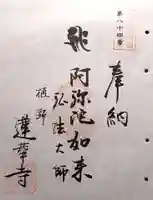 第八十四番
奉納
阿弥陀如来
弘法大師
蓮華寺